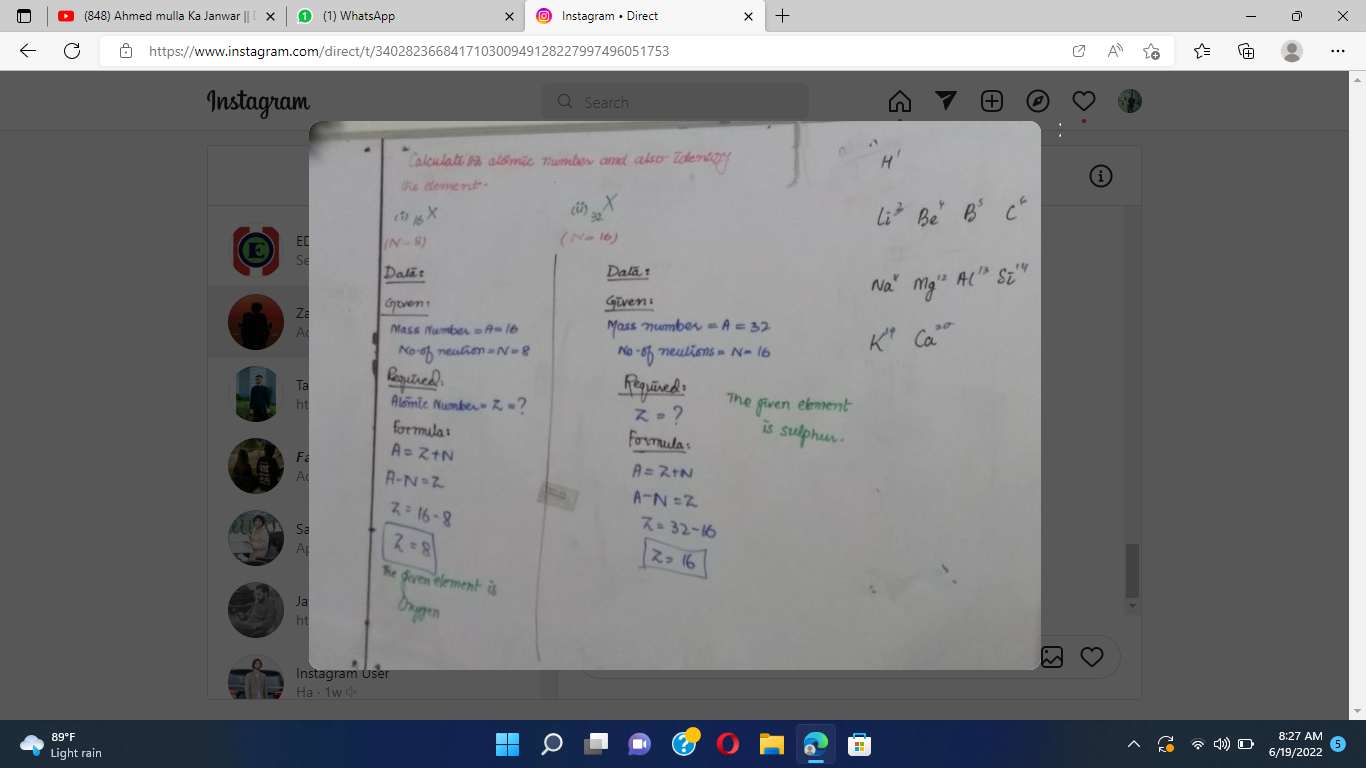 (848) Ahmed mulla Ka Janwar ||
(1) WhatsApp
Instagram • Direct
https://www.instagram.com/direct/t/340282366841710300949128227997496051753
Instagram
Search
ED
Se
Za
Ac
Ta
ht
Fa
Ac
Sa
Ap
Ja
ht
Instagram User
Ha · 1w
Calculate the atomic number and also Identify
the element.
(i) 16 X
(N-8)
Data:
Given:
Mass Number = A = 16
No-of neutron = N = 8
Required:
Atomic Number = Z = ?
Formula:
A = Z+N
A-N = Z
Z = 16-8
Z = 8
The given element is
Oxygen
(ii) 32 X
(N=16)
Data:
Given:
Mass number = A = 32
No-of neutions = N = 16
Required:
Z = ?
Formula:
A = Z+N
A-N = Z
Z = 32-16
Z = 16
The given element
is sulphur.
H1
Li3 Be4 B5 C6
Na Mg12 Al13 Si14
K19 Ca20
89°F
Light rain
8:27 AM
6/19/2022
5